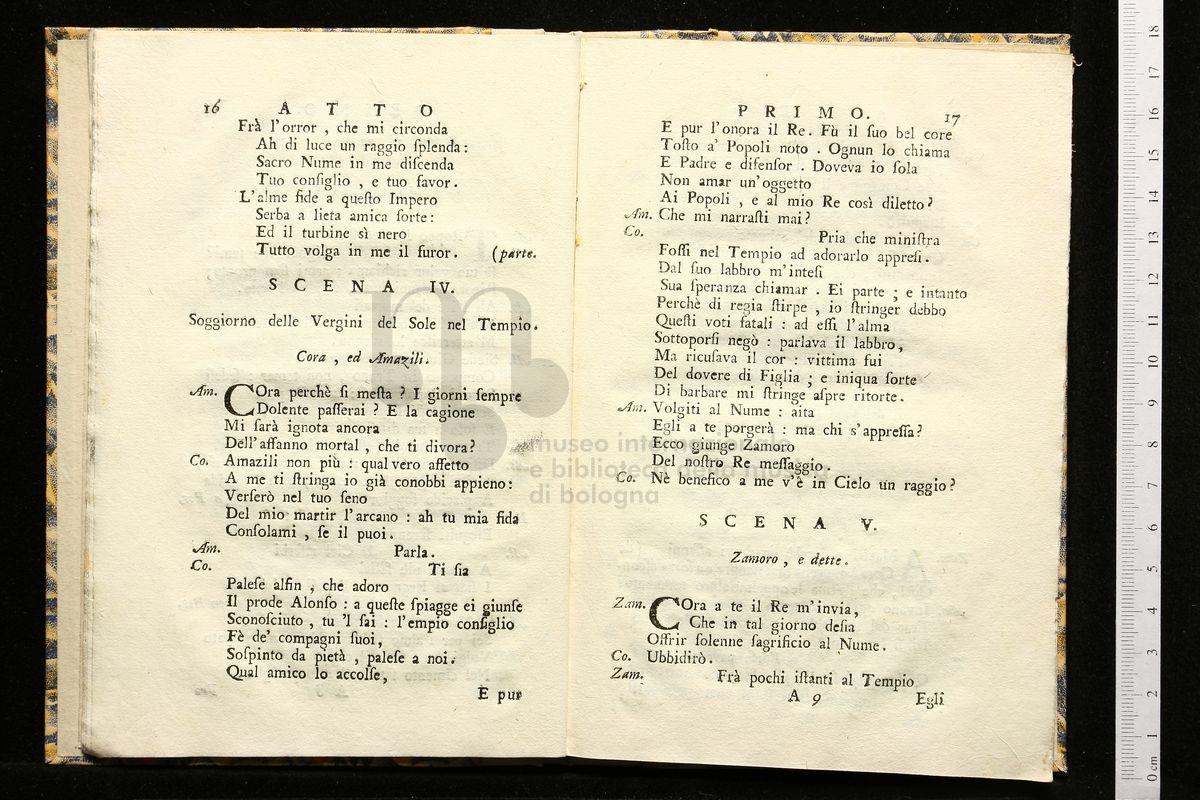 16 ATTO
Frà l'orror , che mi circonda
Ah di luce un raggio ſplenda:
Sacro Nume in me diſcenda
Tuo conſiglio , e tuo favor.
L'alme fide a queſto Impero
Serba a lieta amica ſorte:
Ed il turbine sì nero
Tutto volga in me il furor. (parte.
SCENA IV.
Soggiorno delle Vergini del Sole nel Tempio.
Cora , ed Amazili.
Am. COra perchè ſi meſta ? I giorni ſempre
Dolente paſſerai ? E la cagione
Mi ſarà ignota ancora
Dell'affanno mortal , che ti divora?
Co. Amazili non più : qual vero affetto
A me ti ſtringa io già conobbi appieno:
Verſerò nel tuo ſeno
Del mio martir l'arcano : ah tu mia fida
Conſolami , ſe il puoi.
Am. Parla.
Co. Ti ſia
Paleſe alfin , che adoro
Il prode Alonſo : a queſte ſpiagge ei giunſe
Sconoſciuto , tu 'l ſai : l'empio conſiglio
Fè de' compagni ſuoi,
Soſpinto da pietà , paleſe a noi.
Qual amico lo accolſe,
E pur
PRIMO. 17
E pur l'onora il Re. Fù il ſuo bel core
Toſto a' Popoli noto . Ognun lo chiama
E Padre e difenſor . Doveva io ſola
Non amar un'oggetto
Ai Popoli , e al mio Re così diletto?
Am. Che mi narraſti mai?
Co. Pria che miniſtra
Foſſi nel Tempio ad adorarlo appreſi.
Dal ſuo labbro m'inteſi
Sua ſperanza chiamar . Ei parte ; e intanto
Perchè di regia ſtirpe , io ſtringer debbo
Queſti voti fatali : ad eſſi l'alma
Sottoporſi negò : parlava il labbro,
Ma ricuſava il cor : vittima fui
Del dovere di Figlia ; e iniqua ſorte
Di barbare mi ſtringe aſpre ritorte.
Am. Volgiti al Nume : aita
Egli a te porgerà : ma chi s'appreſſa?
Ecco giunge Zamoro
Del noſtro Re meſſaggio.
Co. Nè benefico a me v'è in Cielo un raggio?
SCENA V.
Zamoro , e dette.
Zam. COra a te il Re m'invia,
Che in tal giorno deſia
Offrir ſolenne ſagrificio al Nume.
Co. Ubbidirò.
Zam. Frà pochi iſtanti al Tempio
A 9 Egli
museo internazionale
e biblioteca della musica
di bologna
0 cm 1 2 3 4 5 6 7 8 9 10 11 12 13 14 15 16 17 18